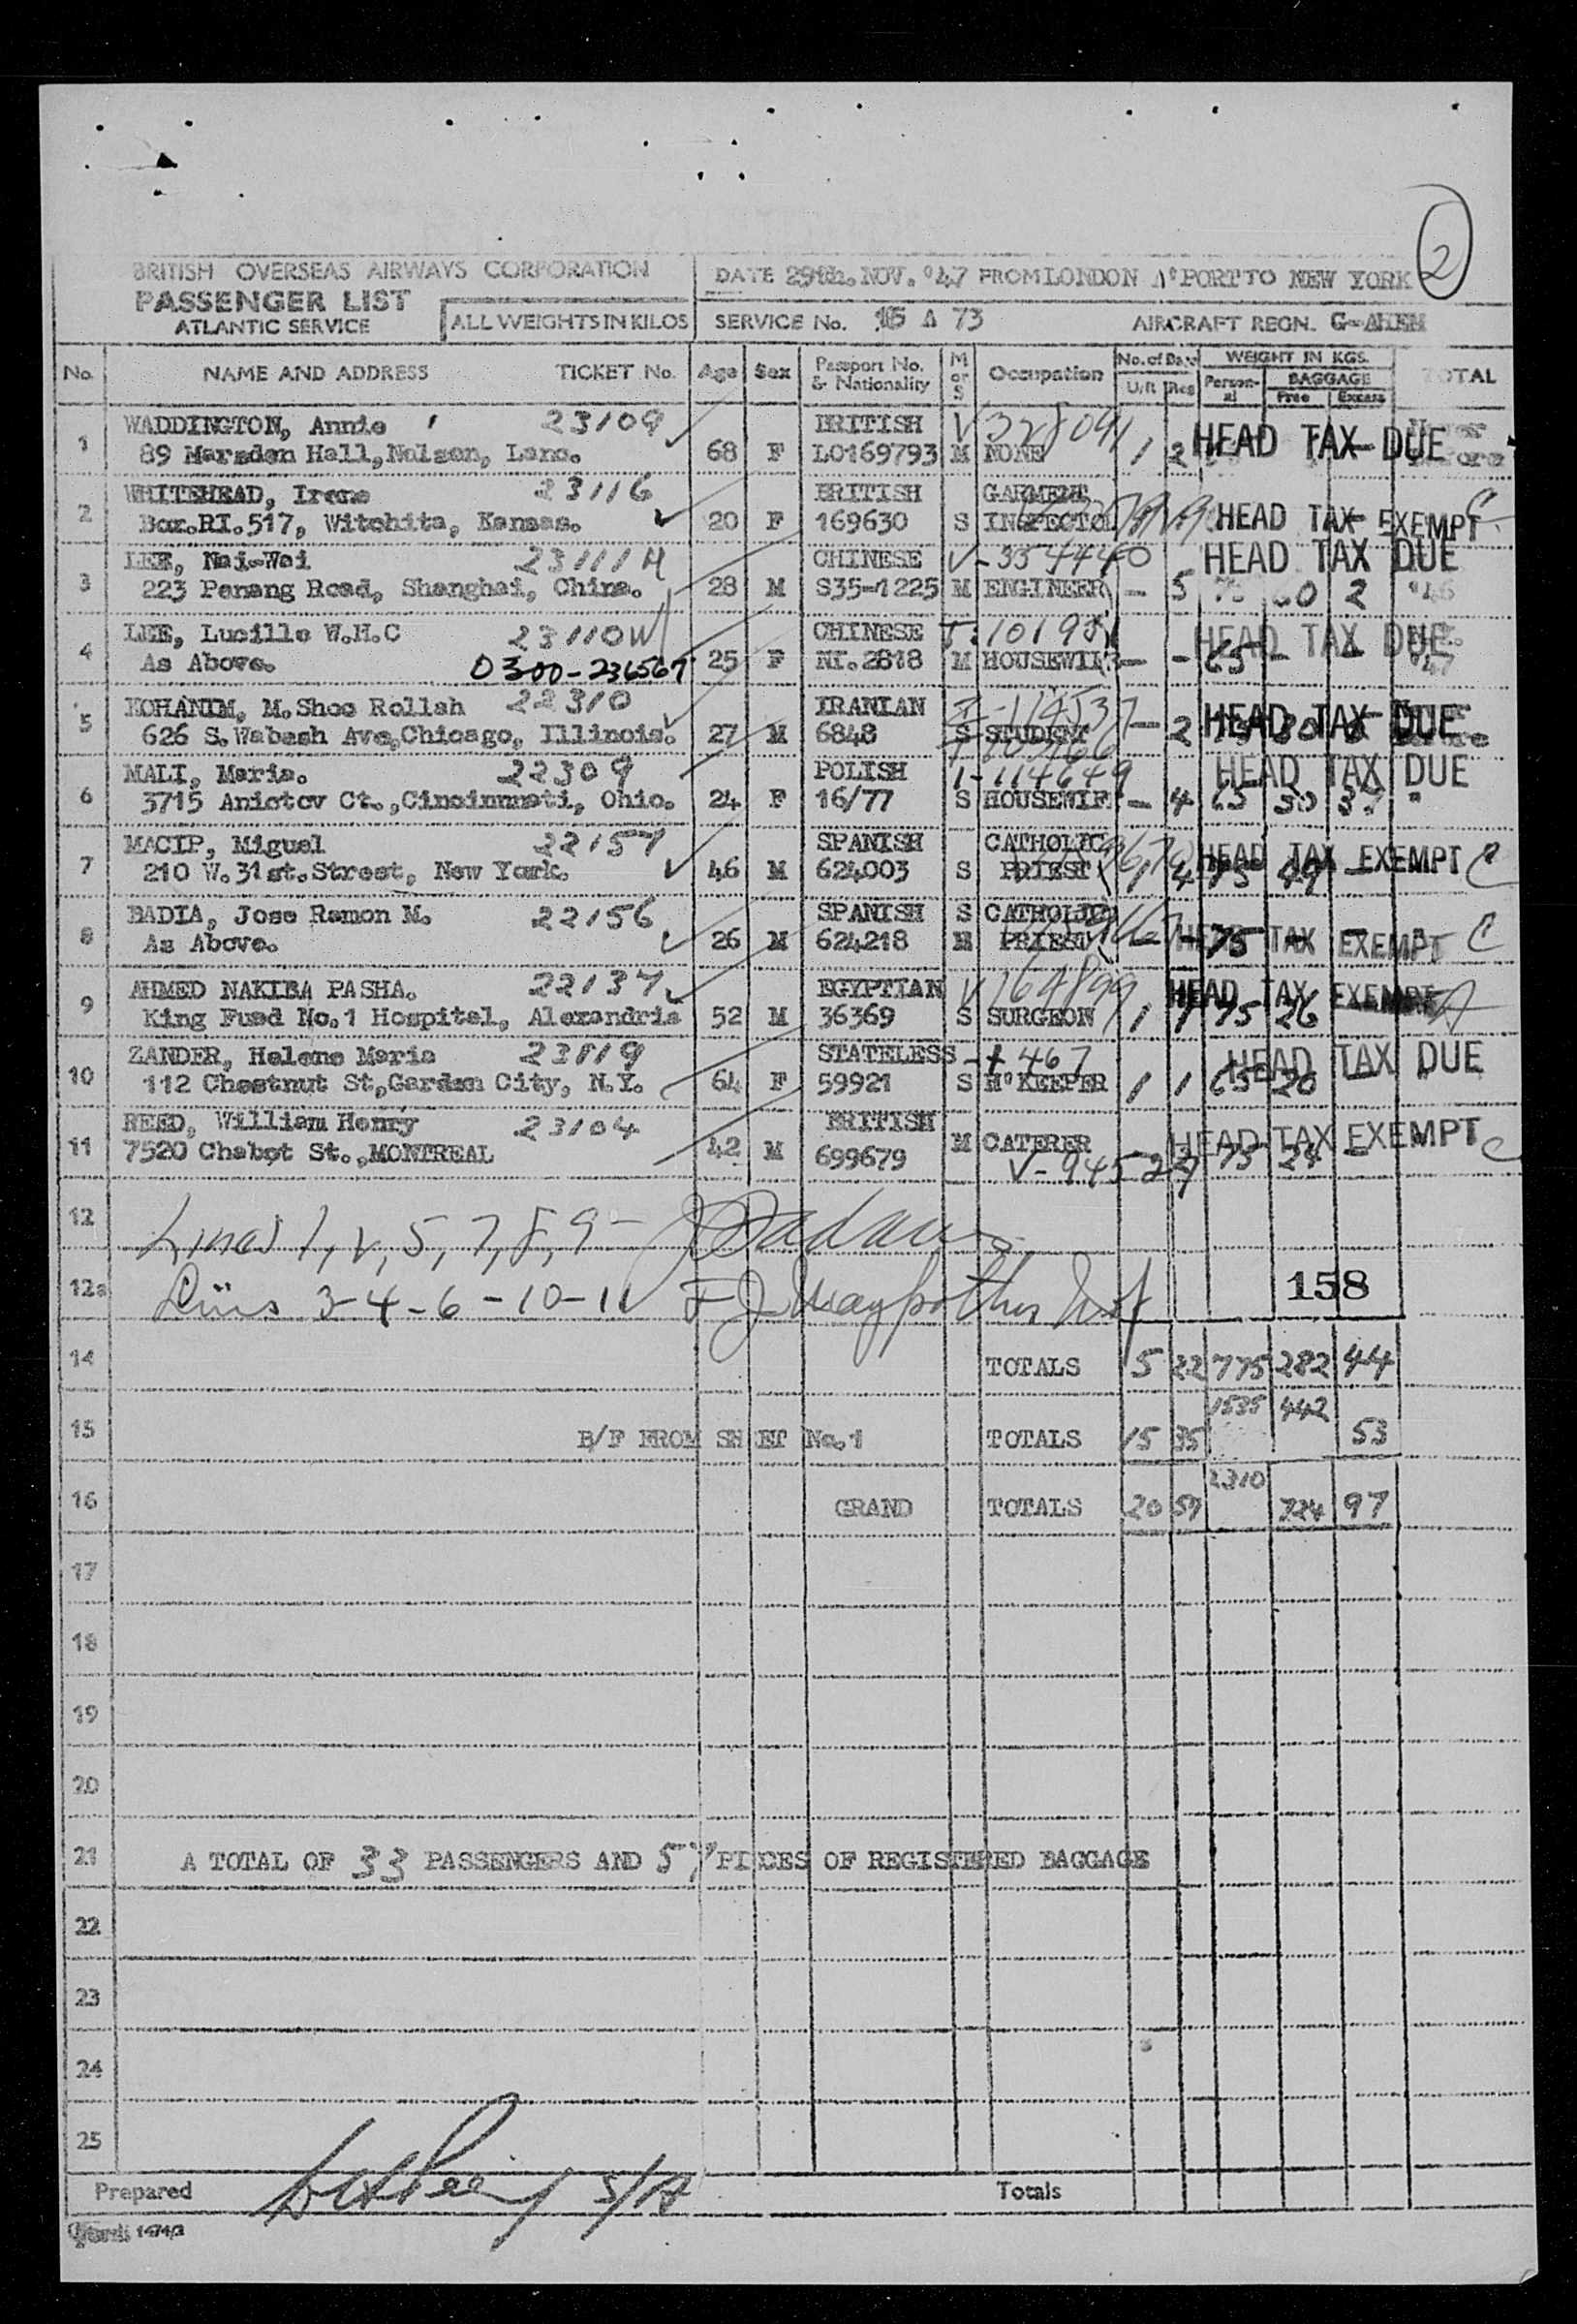 2
BRITISH OVERSEAS AIRWAYS CORPORATION
PASSENGER LIST
ATLANTIC SERVICE
ALL WEIGHTS IN KILOS
DATE 29th. NOV. '47 FROM LONDON A'PORT TO NEW YORK
SERVICE No. A 73 AIRCRAFT REGN. G-AHEM
No. NAME AND ADDRESS TICKET No. Age Sex Passport No. & Nationality M or S Occupation No. of Bags U/R Reg WEIGHT IN KGS. Personal BAGGAGE Free Excess TOTAL
1 WADDINGTON, Annie 23109 BRITISH V 328091 HEAD TAX DUE
89 Marsden Hall, Nelson, Lanc. 68 F L0169793 M NONE 1 2
2 WHITEHEAD, Irene 23116 BRITISH GARMENT
Box.RI.517, Witchita, Kansas. 20 F 169630 S INSPECTOR HEAD TAX EXEMPT
3 LEE, Nai-Wai 23111H CHINESE V-354440 HEAD TAX DUE
223 Penang Road, Shanghai, China. 28 M S35-1225 M ENGINEER - 5 2
4 LEE, Lucille W.H.C 23110W CHINESE HEAD TAX DUE
As Above. 0300-236567 25 F NY.2818 M HOUSEWIFE - - 65 -
5 KOHANIM, M.Shoo Rollah 22310 IRANIAN I-114537 HEAD TAX DUE
626 S.Wabash Ave,Chicago, Illinois. 27 M 6848 S STUDENT - 2
6 MALI, Maria. 22309 POLISH 1-114649 HEAD TAX DUE
3715 Anictov Ct.,Cincinnati, Ohio. 24 F 16/77 S HOUSEWIFE - 4 65 30
7 MACIP, Miguel 22157 SPANISH CATHOLIC HEAD TAX EXEMPT C
210 W.31st.Street, New York. 46 M 624003 S PRIEST 1 4 75 49 -
8 BADIA, Jose Ramon M. 22156 SPANISH S CATHOLIC
As Above. 26 M 624218 M PRIEST - - 75 HEAD TAX EXEMPT C
9 AHMED NAKIBA PASHA. 22137 EGYPTIAN V 164899 HEAD TAX EXEMPT
King Fuad No.1 Hospital, Alexandria 52 M 36369 S SURGEON 1 1 75 26
10 ZANDER, Helene Maria 23119 STATELESS 467 HEAD TAX DUE
112 Chestnut St,Garden City, N.Y. 64 F 59921 S H'KEEPER 1 1 65 20 -
11 REED, William Henry 23104 BRITISH HEAD TAX EXEMPT C
7520 Chabot St.,MONTREAL 42 M 699679 M CATERER 75 24 -
V-94527
12 Lines 1, 2, 5, 7, 8, 9 -
12a Lines 3-4-6-10-11
158
14 TOTALS 5 22 775 282 44
15 B/F FROM SHEET No.1 TOTALS 15 35 1535 442 53
16 GRAND TOTALS 20 57 2310 724 97
17
18
19
20
21 A TOTAL OF 33 PASSENGERS AND 57 PIECES OF REGISTERED BAGGAGE
22
23
24
25
Prepared S/A Totals